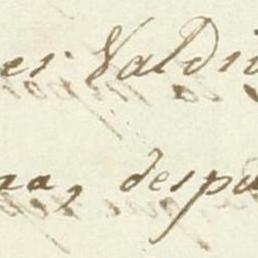 es Valdi
aa, despu